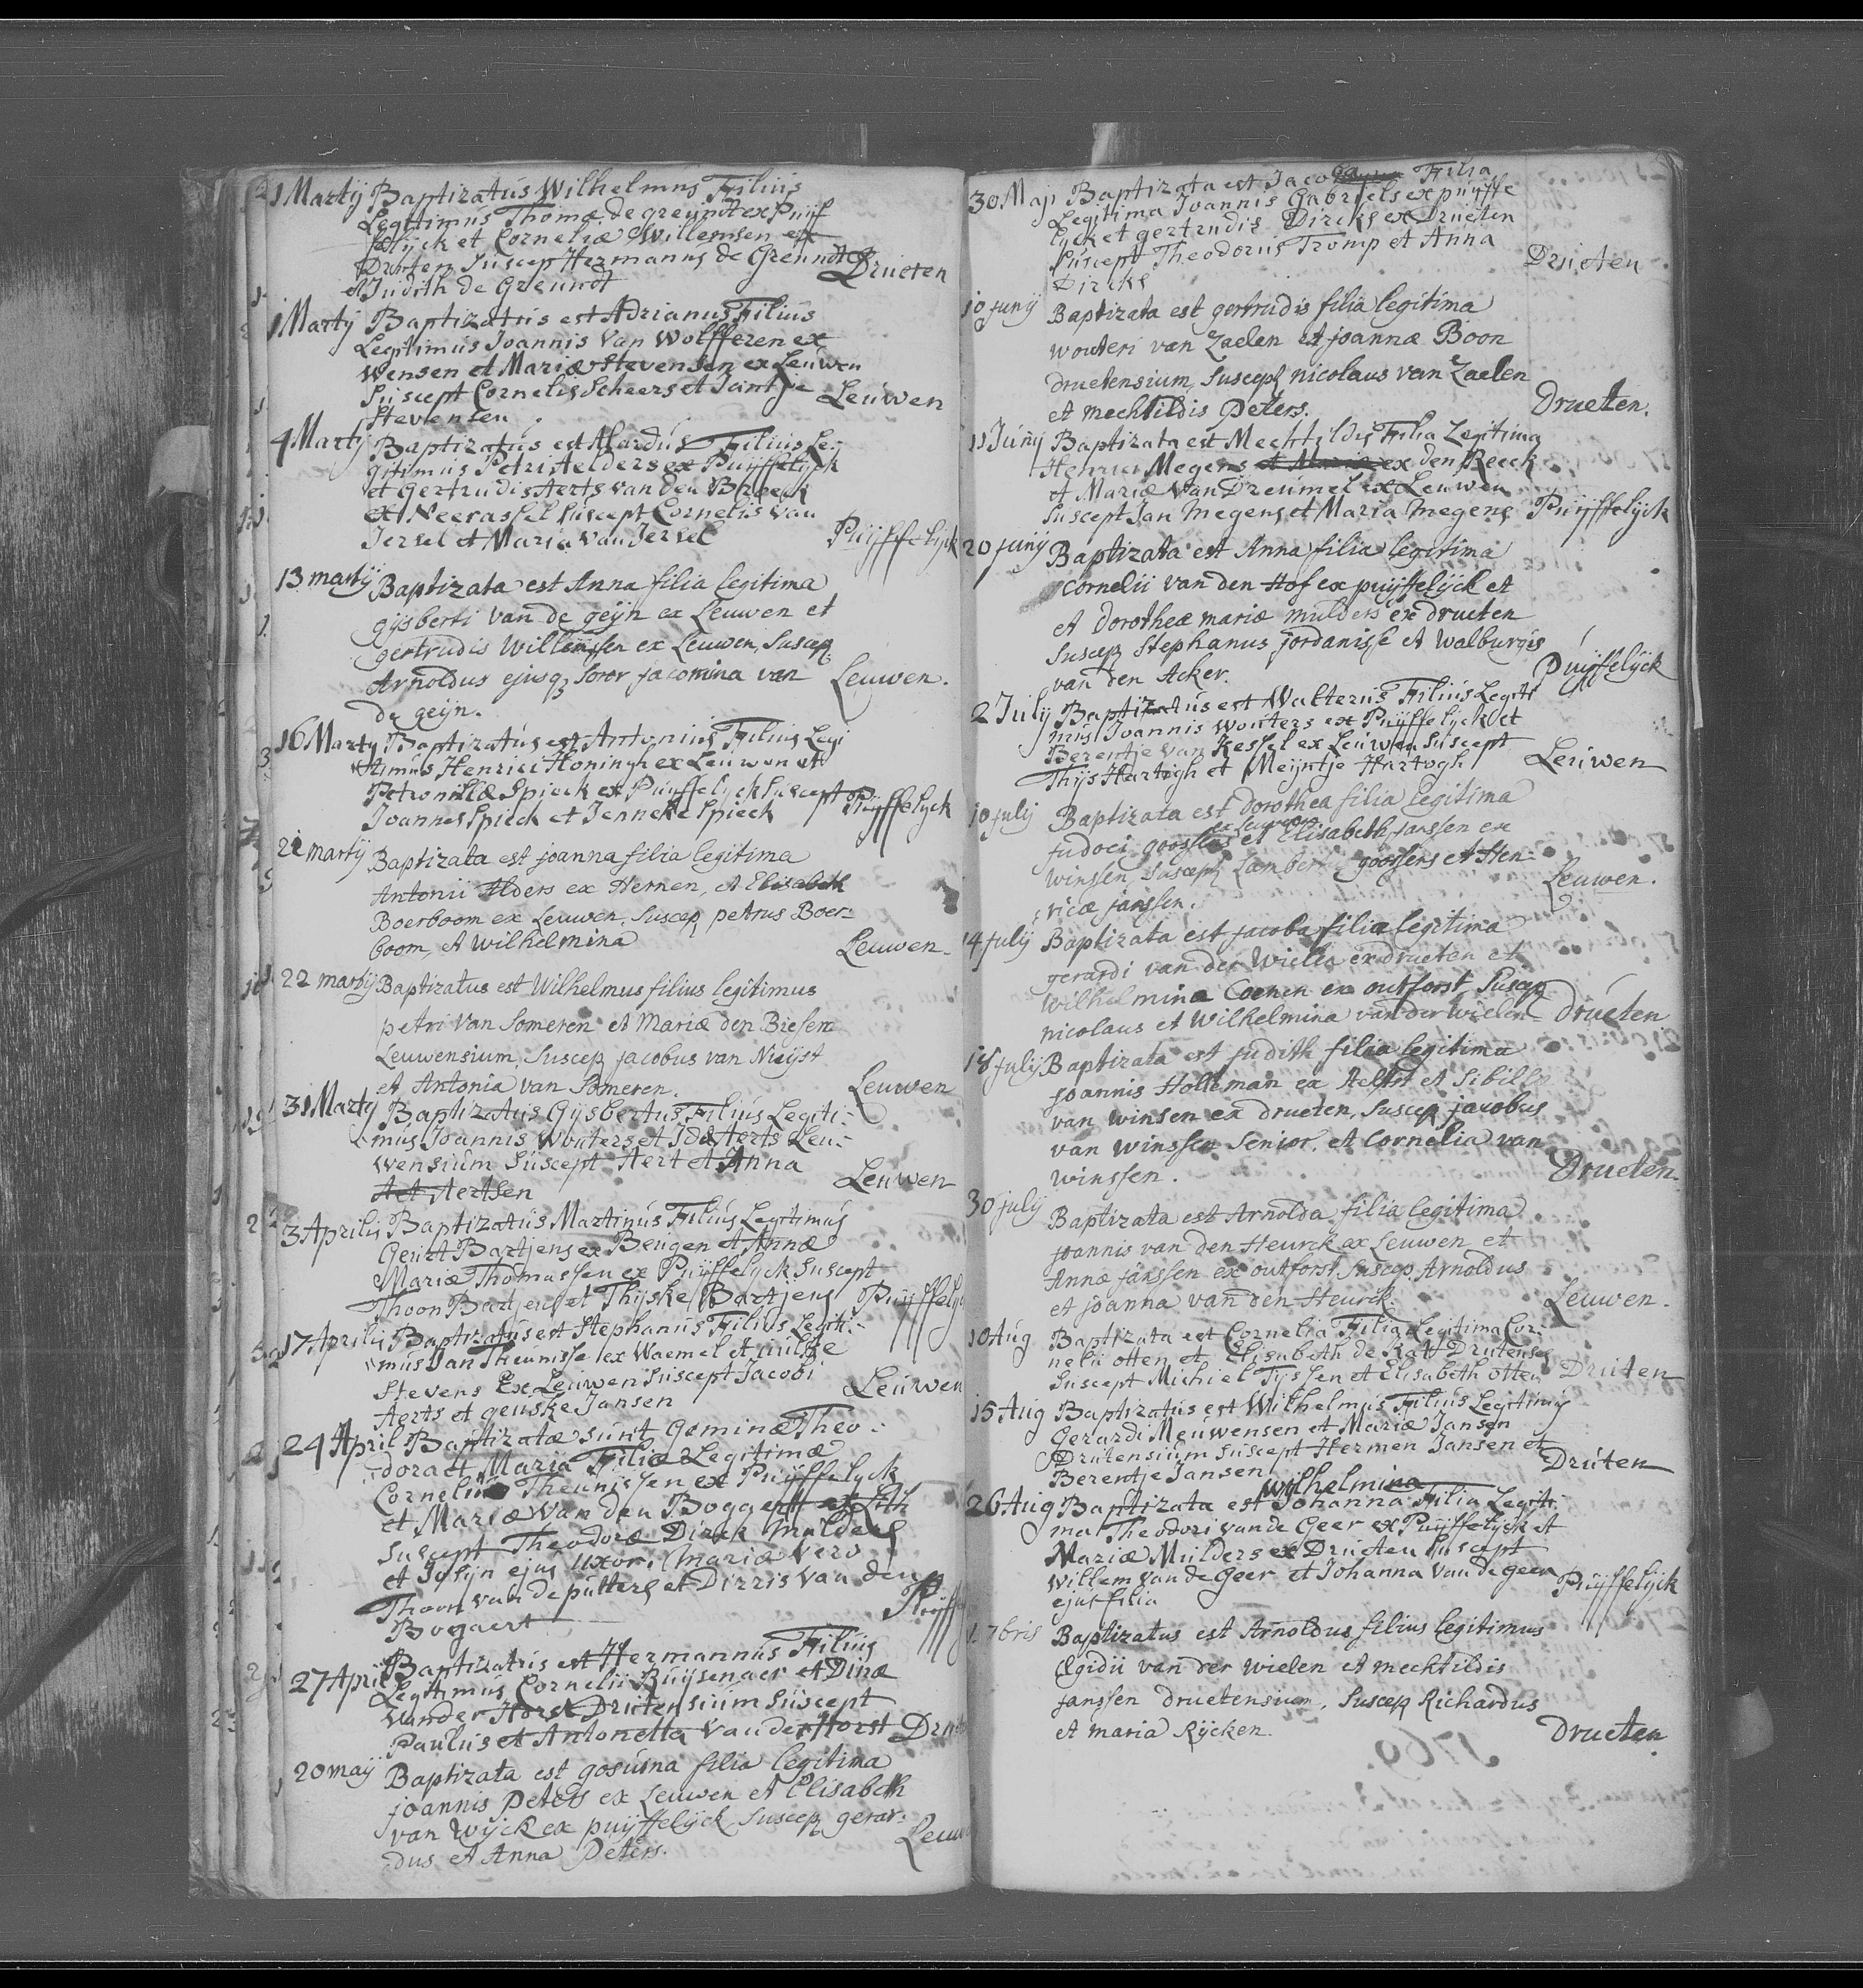 1 Martij Baptizatus Wilhelmus Filius
Legitimus Thomæ de greundt ex Puijf
felijck et Corneliæ Willemsen ex
Druten Suscep Hermanus de Greundt Drueten
et Judith de Greundt
1 Martij Baptizatus est Adrianus Filius
Legitimus Joannis Van Wolfferen ex
Wensen et Mariæ Stevensen ex Leuwen
Suscept Cornelis Scheers et Jantje Leuwen
Stevensen
4 Martij Baptizatus est Alardus Filius Le-
gitimus Petri Aelders ex Puijffelijck
et Gertrudis Aerts van den Broeck
ex Neerassel suscept Cornelis van
Jersel et Maria van Jersel Puijffelijck
13 martij Baptizata est Anna filia legitima
gijsberti van de geijn ex Leuwen et
gertrudis Willemssen ex Leuwen, Suscep
Arnoldus ejusq soror jacomina van Leuwen.
de geijn.
16 Marty Baptizatus est Antonius Filius Legi
timus Henrici Honingh ex Leuwen et
Petronillæ Spieck ex Puijffelyck Suscept Puijffelyck
Joannes Spieck et Jenneke Spieck
21 martij Baptizata est joanna filia legitima
Antonii Alders ex Hernen, et Elisabeth
Boerboom ex Leuwen. Suscep petrus Boer-
boom, et Wilhelmina Leuwen.
22 martij Baptizatus est Wilhelmus filius legitimus
petri Van Someren et Mariæ den Biesen
Leuwensium, Suscep jacobus van Nuijst
et Antonia van Someren. Leuwen
31 Marty Baptizatus Gijsbertus Filius Legiti-
mus Joannis Wouters et Ida Aerts Leu-
wensium Suscept Aert et Anna
Aertsen Leuwen
3 Aprilis Baptizatus Martinus Filius Legitimus
Geurt Bartjens ex Beugen et Annæ
Mariæ Thomassen ex Puijffelyck Suscept
Thoon Bartjens et Thijske Bartjens Puijffelyc
17 Aprilis Baptizatus est Stephanus Filius Legiti-
mus Jan Theunisse ex Waemel et
Stevens Ex Leuwen Suscept Jacobi
Aerts et geuske Jansen Leuwen
24 April Baptizatæ sunt Geminæ Theo-
dora et Maria Filiæ Legitimæ
Cornelius Theunissen ex Puijffelyck
et Mariæ Van den Bogaert ex Lith
Suscept Theodoræ Dirck Mulders
et Josijn ejus Uxor. Mariæ Vero
Thoon van de putters et Dirris Van den
Bogaert Puijff
27 April Baptizatus est Hermannus Filius
Legitimus Cornelii Buijsenaer et Dinæ
Vander Horst Drutensium Suscept
Paulus et Antonetta Vander Horst Drute
20 maij Baptizata est gosuina filia legitima
joannis peters ex Leuwen et Elisabeth
van Wijck ex puijffelijck Suscep gerar-
dus et Anna Peters. Leuw
30 Maji Baptizata est Jacoba Filia
Legitima Joannis Gabriels ex puijffe
lijck et gertrudis Dircks ex Drueten
Suscept Theodorus Tromp et Anna
Dircks Drueten
10 junij Baptizata est gertrudis filia legitima
wouteri van Zaelen et joannæ Boon
druetensium, Suscep nicolaus van Zaelen
et mechtildis Peters. Drueten.
11 Junij Baptizata est Mechtildis Filia Legitima
Henrici Megens et Mariæ ex den Reeck
et Mariæ Van Dreumel ex Leuwen
Suscept Jan Megens et Maria Megens Puijffelijck
20 junij Baptizata est Anna filia legitima
Cornelii van den Hof ex puijffelijck et
et Dorotheæ mariæ mulders ex drueten
Suscep Stephanus jordanisse et Walburgis
van den Acker. Puijffelijck
2 July Baptizatus est Walterus Filius Legiti
mus Joannis Wouters ex Puijffelijck et
Berentje van Kessel ex Leuwen Suscept
Thijs Hartogh et Meijntje Hartogh Leuwen
10 julij Baptizata est Dorothea filia legitima
ex leuwen
judoci goossens et Elisabeth janssen ex
Winssen, Suscep Lambert goossens et Hen-
ricæ janssen. Leuwen.
14 julij Baptizata est jacoba filia legitima
gerardi van der Wielen ex drueten et
Wilhelminæ Coenen ex outforst, Suscep
nicolaus et Wilhelmina van der Wielen Drueten
18 julij Baptizata est judith filia legitima
joannis Holleman ex Aelst et Sibillæ
van winsen ex drueten, Suscep jacobus
van winssen Senior, et Cornelia van
winssen. Drueten.
30 julij Baptizata est Arnolda filia legitima
joannis van den Heurck ex Leuwen et
Annæ janssen ex outforst, Suscep Arnoldus
et joanna van den Heurck. Leuwen.
10 Aug Baptizata est Cornelia Filia Legitima Cor-
nelii otten et Elisabeth de Katt Drutenses
Suscept Michiel Tyssen et Elisabeth otten Druten
15 Aug Baptizatus est Wilhelmus Filius Legitimus
Gerardi Meuwensen et Mariæ Jansen
Drutensium Suscept Hermen Jansen et
Berentje Jansen Druten
Wilhelmina
26 Aug Baptizata est Johanna Filia Legiti-
ma Theodori van de Geer ex Puijffelyck et
Mariæ Mulders ex Drueten Suscept
Willem van de Geer et Johanna Van de geer
ejus filia Puijffelijck
7bris Baptizatus est Arnoldus filius legitimus
Ægidii van der Wielen et mechtildis
janssen druetensium, Suscep Richardus
et maria Rijcken. Drueten